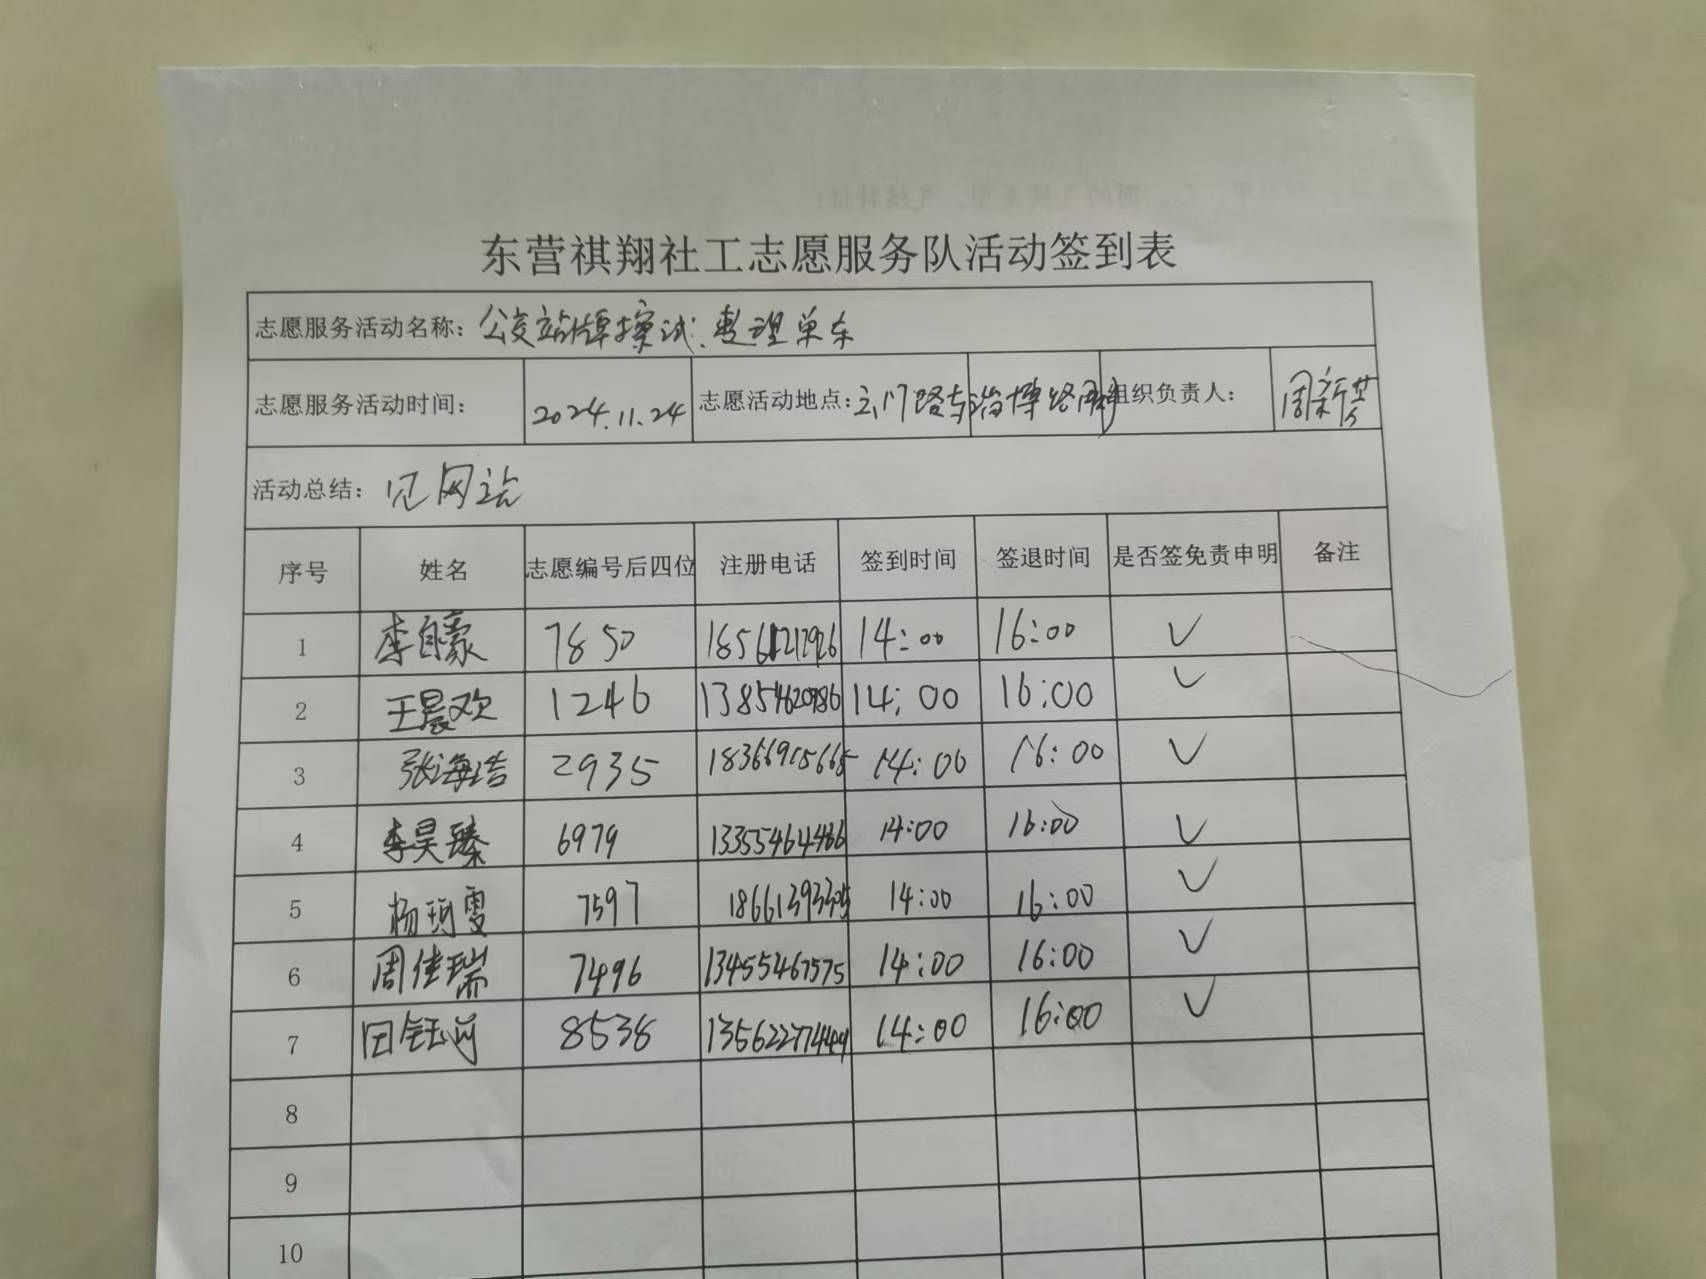 东营祺翔社工志愿服务队活动签到表
志愿服务活动名称：公交站牌擦试、整理单车
志愿服务活动时间： 2024.11.24 志愿活动地点： 路与淄博路 组织负责人： 周新芳
活动总结：见网站
序号 姓名 志愿编号后四位 注册电话 签到时间 签退时间 是否签免责申明 备注
1 李自豪 7850 14:00 16:00 ✓
2 王晨欢 1246 13854620986 14:00 16:00 ✓
3 张海浩 2935 18366915665 14:00 16:00 ✓
4 李昊臻 6979 13355464466 14:00 16:00 ✓
5 杨 雯 7597 14:00 16:00 ✓
6 周佳瑞 7496 13455467575 14:00 16:00 ✓
7 田钰 8538 14:00 16:00 ✓
8
9
10